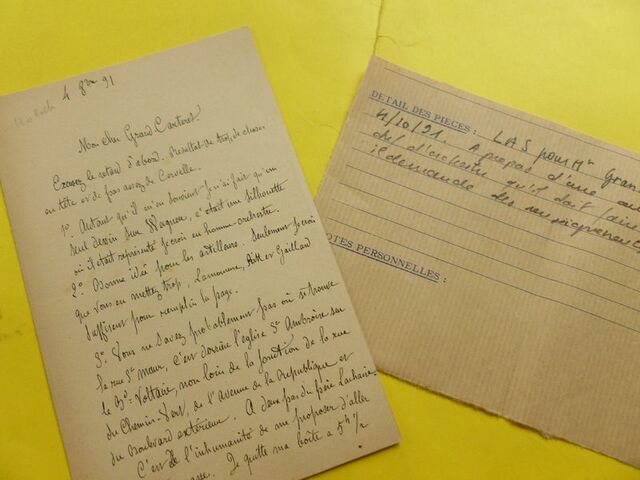 4 8bre 91
Mon cher Grand Carteret,
Excusez le retard d'abord. Résultat de trop de choses
en tête et de pas assez de Cervelle.
1º. Autant qu'il m'en souvient je n'ai fait qu'un
seul dessin sur Wagner, c'était une Silhouette
où il était représenté je crois en homme-orchestre.
2º. Bonne idée pour les artilleurs. Seulement je crois
que vous en mettez trop, Lamoureux, et Gaillard
suffiront pour remplir la page.
3º. Vous ne savez probablement pas où se trouve
la rue St Maur, c'est derrière l'église St Ambroise sur
le Bd. Voltaire, non loin de la jonction de la rue
du Chemin-Vert, de l'Avenue de la République et
du Boulevard extérieur. A deux pas du père Lachaise.
C'est de l'inhumanité de me proposer d'aller
Je quitte ma boîte à 5h 1/2
DETAIL DES PIECES : LAS pour Mr Gran
4/10/91. A propos d'une
d'orchestre qu'il doit faire
il demande des renseignements
NOTES PERSONNELLES :